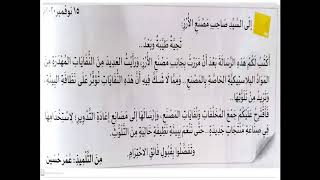 ١٥ نوفمبر
إِلَى السَّيِّدِ صَاحِبِ مَصْنَعِ الأُرْزِ:
تَحِيَّةً طَيِّبَةً وَبَعْدُ..
أَكْتُبُ لَكُمْ هَذِهِ الرِّسَالَةَ بَعْدَ أَنْ مَرَرْتُ بِجَانِبِ مَصْنَعِ الأُرْزِ، وَرَأَيْتُ الْعَدِيدَ مِنَ النُّفَايَاتِ الْمُهْدَرَةِ مِنَ
الْمَوَادِّ البِلَاسْتِيكِيَّةِ الْخَاصَّةِ بِالْمَصْنَعِ. وَمِمَّا لَا شَكَّ فِيهِ أَنَّ هَذِهِ النُّفَايَاتِ تُؤَثِّرُ عَلَى نَظَافَةِ الْبِيئَةِ
وَتَزِيدُ مِنْ تَلَوُّثِهَا..
فَأَقْتَرِحُ عَلَيْكُمْ جَمْعَ الْمُخَلَّفَاتِ وَنُفَايَاتِ الْمَصْنَعِ، وَإِرْسَالَهَا إِلَى مَصَانِعِ إِعَادَةِ التَّدْوِيرِ؛ لِاسْتِخْدَامِهَا
فِي صِنَاعَةِ مُنْتَجَاتٍ جَدِيدَةٍ.. حَتَّى نَنْعَمَ بِبِيئَةٍ نَظِيفَةٍ خَالِيَةٍ مِنَ التَّلَوُّثِ.
وَتَفَضَّلُوا بِقَبُولِ فَائِقِ الِاحْتِرَامِ.
مِنَ التِّلْمِيذِ: عُمَرَ حُسَيْن